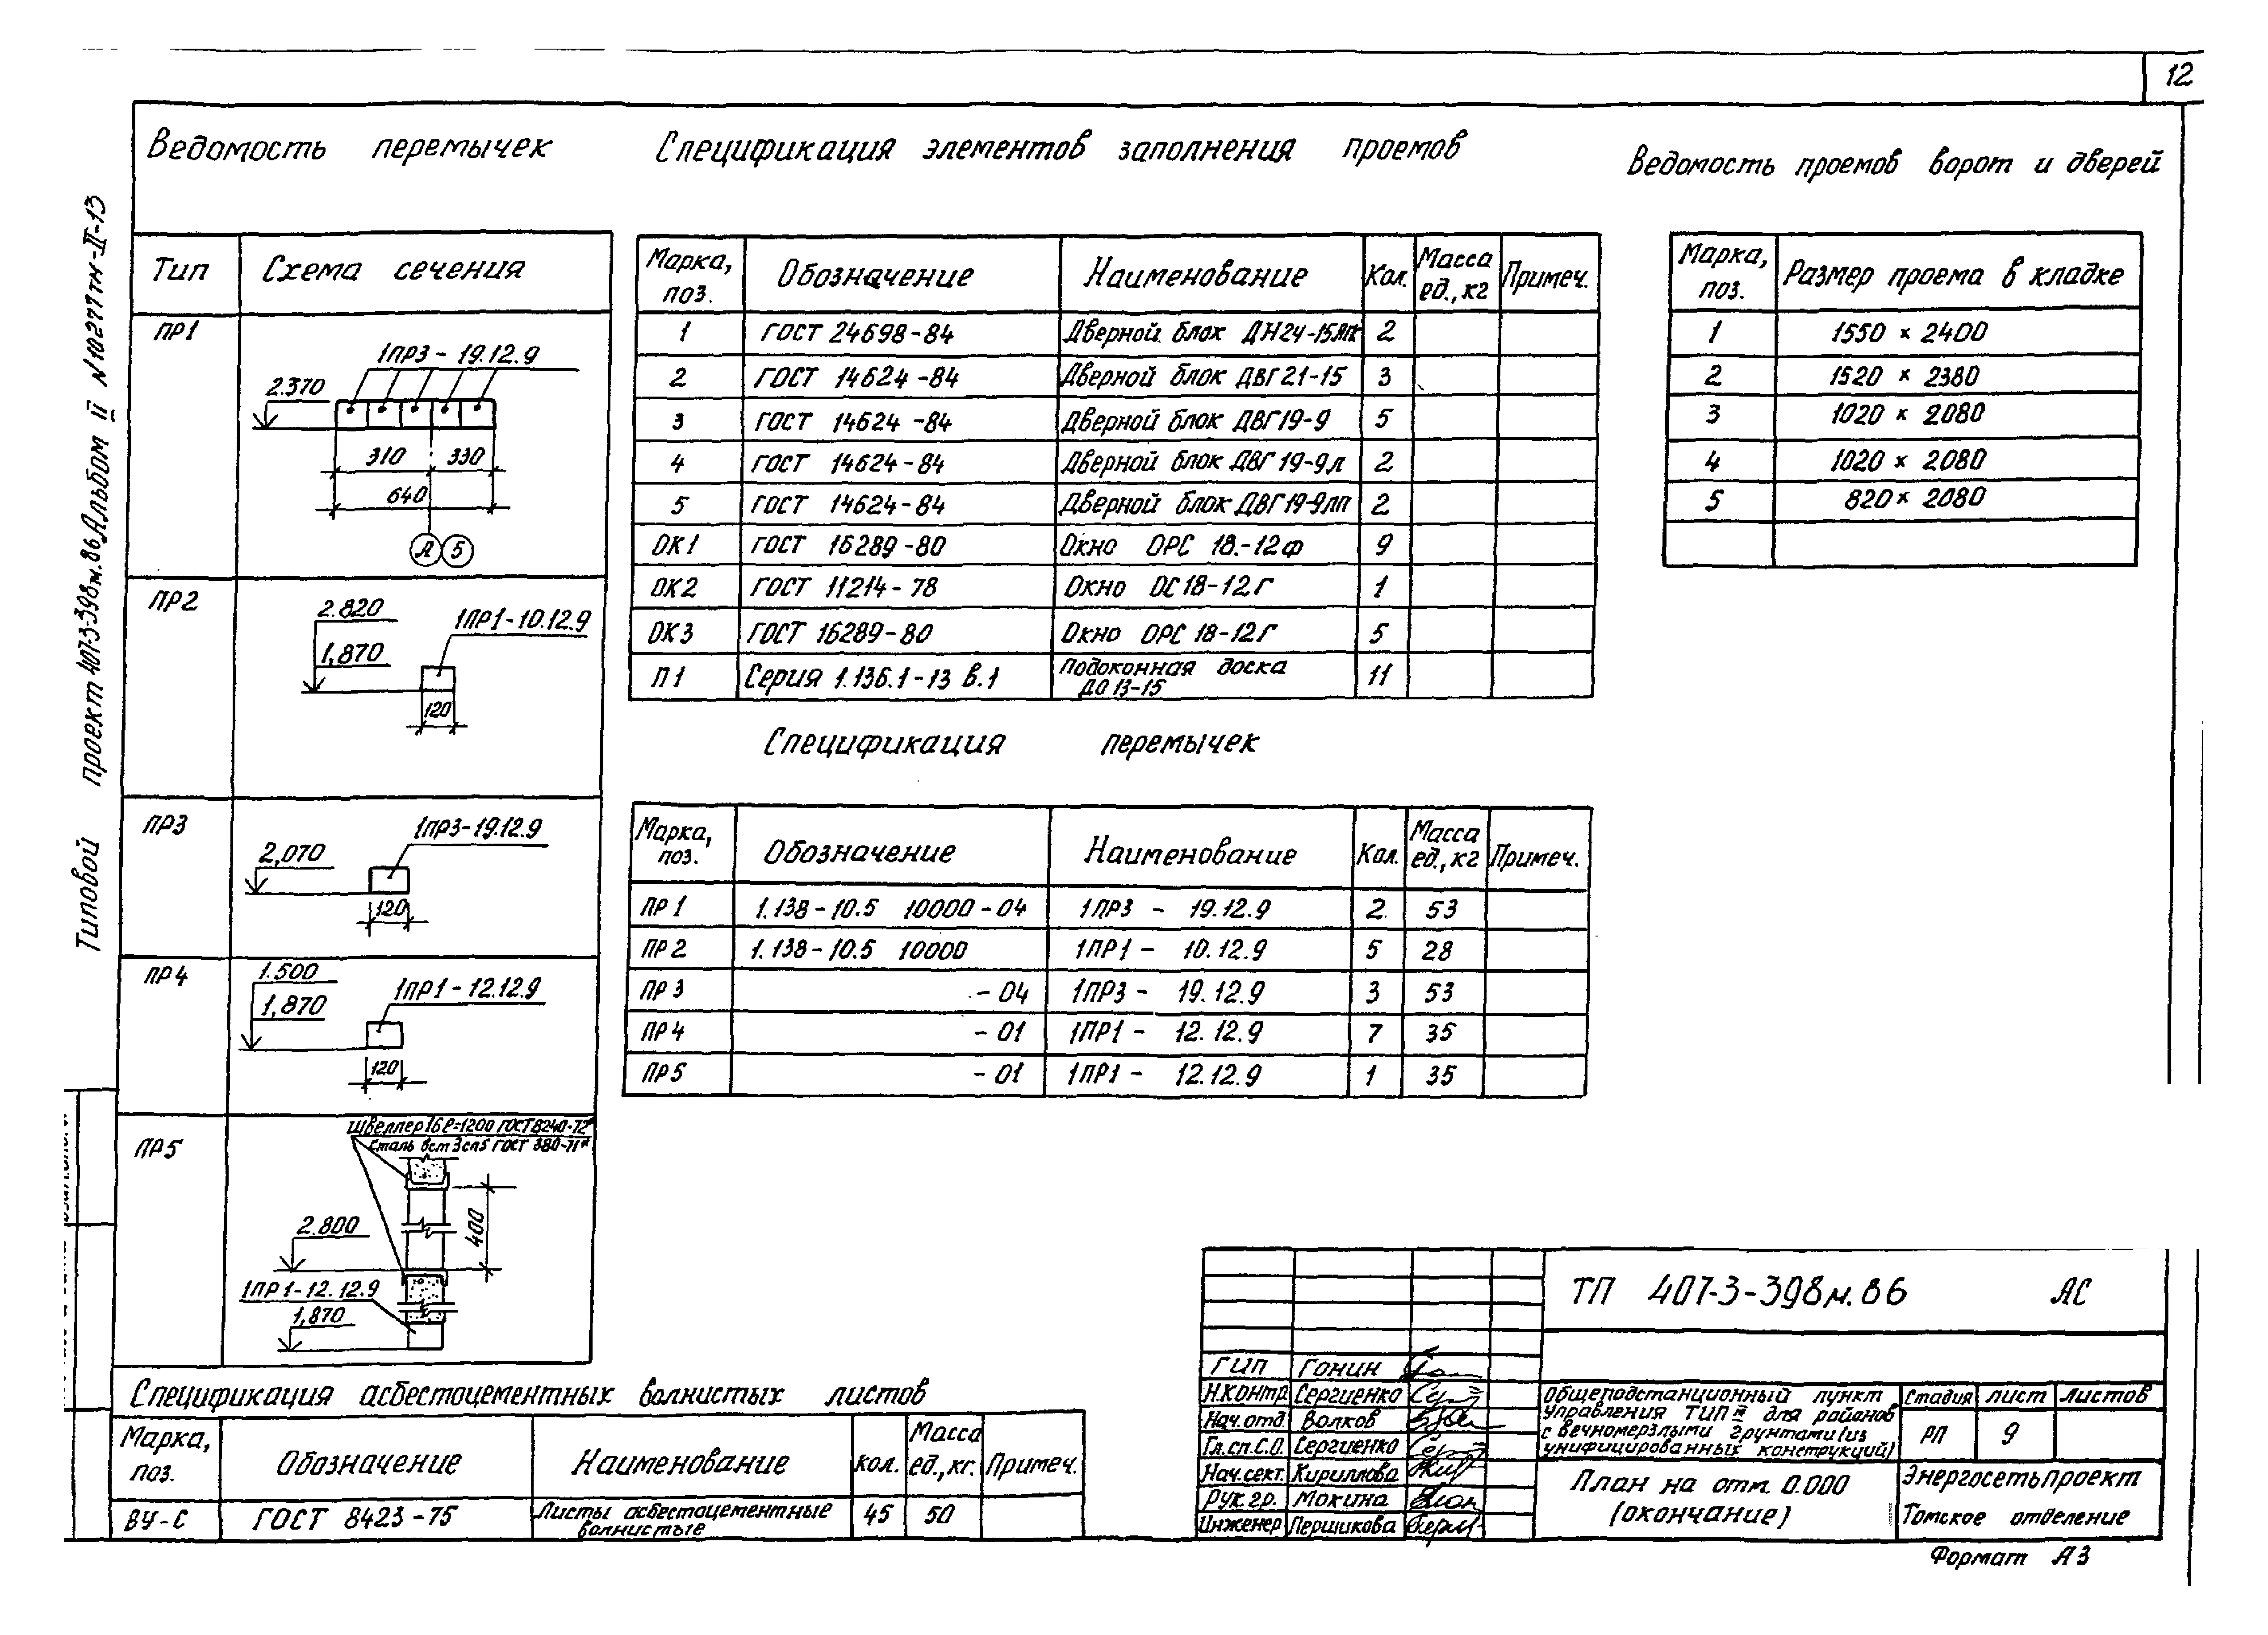 12
Ведомость перемычек
Тип Схема сечения
ПР1
1ПР3 - 19.12.9
2.370
310 330
640
А 5
ПР2
2.820
1,870
1ПР1-10.12.9
120
ПР3
1ПР3-19.12.9
2,070
120
ПР4
1.500
1,870
1ПР1-12.12.9
120
ПР5
Швеллер 16 ℓ=1200 ГОСТ 8240-72*
Сталь Вст3сп5 ГОСТ 380-71*
400
2.800
1ПР1-12.12.9
1,870
Спецификация элементов заполнения проемов
Марка, поз. Обозначение Наименование Кол. Масса ед., кг Примеч.
1 ГОСТ 24698-84 Дверной блок ДН24-15 2
2 ГОСТ 14624-84 Дверной блок ДВГ21-15 3
3 ГОСТ 14624-84 Дверной блок ДВГ19-9 5
4 ГОСТ 14624-84 Дверной блок ДВГ19-9л 2
5 ГОСТ 14624-84 Дверной блок ДВГ19-9лп 2
ОК1 ГОСТ 16289-80 Окно ОРС 18.-12ф 9
ОК2 ГОСТ 11214-78 Окно ОС18-12Г 1
ОК3 ГОСТ 16289-80 Окно ОРС 18-12Г 5
П1 Серия 1.136.1-13 в.1 Подоконная доска ДО 13-15 11
Спецификация перемычек
Марка, поз. Обозначение Наименование Кол. Масса ед., кг Примеч.
ПР1 1.138-10.5 10000-04 1ПР3 - 19.12.9 2 53
ПР2 1.138-10.5 10000 1ПР1 - 10.12.9 5 28
ПР3 -04 1ПР3 - 19.12.9 3 53
ПР4 -01 1ПР1 - 12.12.9 7 35
ПР5 -01 1ПР1 - 12.12.9 1 35
Ведомость проемов ворот и дверей
Марка, поз. Размер проема в кладке
1 1550 × 2400
2 1520 × 2380
3 1020 × 2080
4 1020 × 2080
5 820 × 2080
Спецификация асбестоцементных волнистых листов
Марка, поз. Обозначение Наименование кол. Масса ед., кг. Примеч.
ВУ-С ГОСТ 8423-75 Листы асбестоцементные волнистые 45 50
Типовой проект 407-3-398м.86 Альбом II N10277тм-II-13
ТП 407-3-398м.86 АС
ГИП Гонин
Н.контр Сергиенко
Нач.отд. Волков
Гл.сп.С.О. Сергиенко
Нач.сект. Кириллова
Рук.гр. Мокина
Инженер Першикова
Общеподстанционный пункт
управления ТИП для районов
с вечномерзлыми грунтами (из
унифицированных конструкций)
Стадия лист листов
РП 9
План на отм. 0.000
(окончание)
Энергосетьпроект
Томское отделение
Формат А3